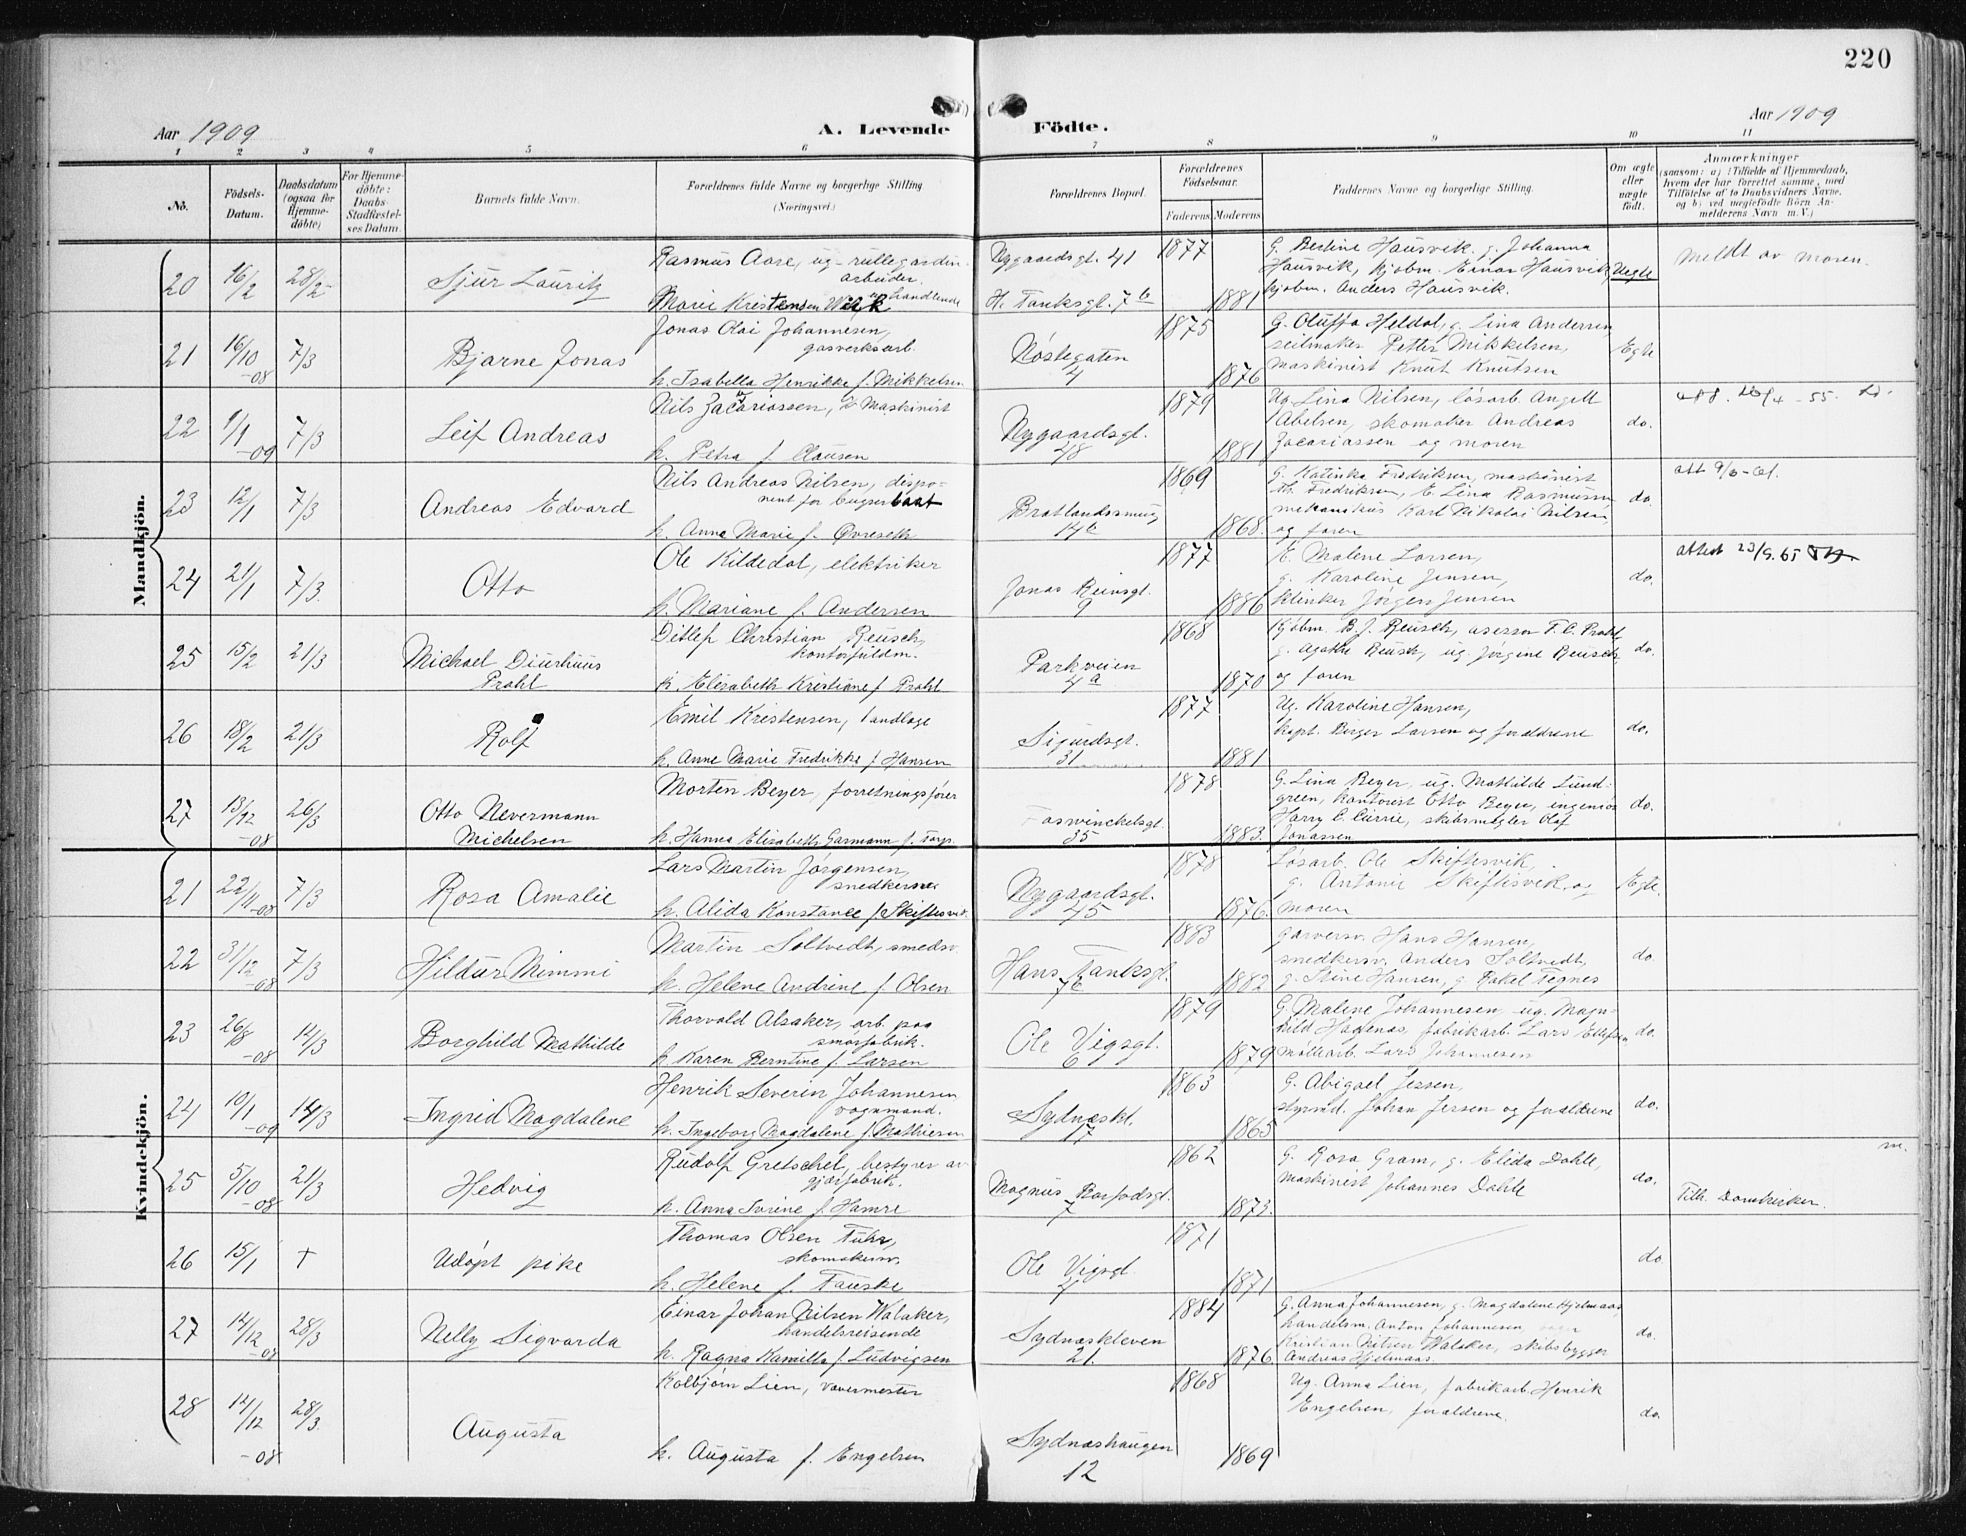 220
Aar 1909
A. Levende Födte.
Aar 1909
1 2 3 4 5 6 7 8 9 10 11
No.
Födsels-Datum.
Daabsdatum (ogsaa för Hjemme-döbte)
For Hjemme-döbte: Daabs Stadfæstel-ses Datum.
Barnets fulde Navn.
Forældrenes fulde Navne og borgerlige Stilling
(Næringsvei.)
Forældrenes Bopæl.
Forældrenes Födselsaar.
Faderens Moderens
Faddernes Navne og borgerlige Stilling.
Om ægte eller uægte födt.
Anmærkninger
(saasom: a) i Tilfælde af Hjemmedaab,
hvem der har forrettet samme, med
Tilföielse af to Daabsvidners Navne,
og b) ved uægtefödte Börn An-
melderens Navn m. V.)
Mandkjön.
20 16/2 28/2 Sjur Lauritz
Rasmus Aase, ug. rullegardin-
arbeider
Marie Kristensen handlende
Nygaardsgt. 41
H. Tanksgt. 7b
1877 1881
G. Bertine Hausvik, g. Johanna
Hausvik, kjøbm. Einar Hausvik,
kjøbm. Anders Hausvik.
Uegte
Meldt av moren.
21 16/10 -08 7/3 Bjarne Jonas
Jonas Olai Johannesen,
gasverksarb.
h. Isabella Henrikke f. Mikkelsen
Nøstegaten
4
1875 1876
G. Oluffa Heldal, g. Lina Andersen,
seilmaker Petter Mikkelsen,
maskinist Knut Knutsen
Egte
22 1/1 -09 7/3 Leif Andreas
Nils Zacariassen, Maskinist
h. Petra f. Clausen
Nygaardsgt.
48
1879 1881
Ug. Lina Nilsen, løsarb. Angell
Abelsen, skomaker Andreas
Zacariassen og moren
do.
23 12/1 7/3 Andreas Edvard
Nils Andreas Nilsen, dispo-
nent for bugserbaat
h. Anna Marie f. Øvreseth
Bratlandssmug
14b
1869 1868
G. Katinka Fredriksen, maskinist
Th. Fredriksen, E. Lina Rasmussen
mekanikus Karl Nikolai Nilsen,
og faren
do.
24 21/1 7/3. Otto
Ole Kildedal, elektriker
h. Mariane f. Andersen
Jonas Reinsgt.
9
1877 1886
E. Malene Larsen,
g. Karoline Jensen,
klinker Jørgen Jensen
do.
attest 23/9.65
25 15/2 21/3 Michael Diurhuus
Prahl
Ditlef Christian Reusch,
kontorfuldm.
h. Elisabeth Kristiane f. Prahl
Parkveien
4a
1868 1870
Kjøbm. B. J. Reusch, asessor T. C. Prahl,
g. Agathe Reusch, ug. Jørgine Reusch,
og faren
do.
26 18/2 21/3 Rolf
Emil Kristensen, tandlæge
h. Anne Marie Fredrikke f. Hansen
Sigurdsgt.
31
1877 1881
Ug. Karoline Hansen,
kapt. Birger Larsen og forældrene
do.
27 13/12 -08 26/3 Otto Nevermann
Michelsen
Morten Beyer, forretningsfører
h. Hanna Elisabeth Garmann f.
Fosswinckelsgt.
35
1878 1883
G. Lina Beyer, ug. Mathilde Lund-
green, kontorist Otto Beyer, ingeniør
Harry C. Currie, skibsmegler Olaf
Jonassen
do.
Kvindekjön.
21 22/11 -08 7/3 Rosa Amalie
Lars Martin Jørgensen,
snedkersv.
h. Alida Konstance f. Skiftesvik.
Nygaardsgt.
45
1878 1876.
Løsarb. Ole Skiftesvik,
g. Antonie Skiftisvik og
moren
Egte.
22 31/12 -08 7/3 Hildur Mimmi
Martin Soltvedt, smedsv.
h. Helene Andrine f. Olsen
Hans Tanksgt.
1883 1882
garversv. Hans Hansen,
snedkersv. Anders Soltvedt,
g. Stine Hansen, g. Rakel Tegnes
do.
23 26/8 -08 14/3 Borghild Mathilde
Thorvald Alsaker, arb. paa
smørfabrik.
h. Karen Berntine f. Larsen
Ole Vigsgt.
6
1879 1879
G. Malene Johannesen, ug. Magn-
hild Hagenas, fabrikarb. Lars Ellefsen
møllearb. Lars Johannesen
do.
24 10/1 -09 14/3 Ingrid Magdalene
Henrik Severin Johannesen
vognmand.
h. Ingeborg Magdalene f. Mathiesen
Sydneskl.
17
1863 1865
G. Abigael Jessen,
styrmd. Johan Jessen og forældrene
do.
25 5/10 -08 21/3 Hedvig
Rudolf Gretschel, bestyrer av
gjærfabrik.
h. Anna Svrine f. Hamre
Magnus Barfodsgt.
7
1862 1873.
G. Rosa Gram, g. Elida Dahle,
maskinist Johannes Dahle
do.
m.
Tilh. Domkirken.
26 15/1 † Udøpt pike
Thomas Olsen Fuhr,
skomakersv.
h. Helene f. Tauske
Ole Vigsgt.
4
1871 1871
do
27 14/12 -08 28/3 Nelly Sigvarda
Einar Johan Nilsen Walaker,
handelsreisende
h. Ragna Kamilla f. Ludvigsen
Sydneskleven
21.
1884 1876
G. Anna Johannesen, g. Magdalene Hjelmaas
handelsm. Anton Johannesen,
Kristian Nilsen Walaker, skibsbygger
Andreas Hjelmaas.
do.
28 14/12 -08 28/3. Augusta
Kolbjørn Lien, vævermester
h. Augusta f. Engelsen
Sydneshaugen
12
1868 1869
Ug. Anna Lien, fabrikarb. Henrik
Engelsen, forældrene.
do.